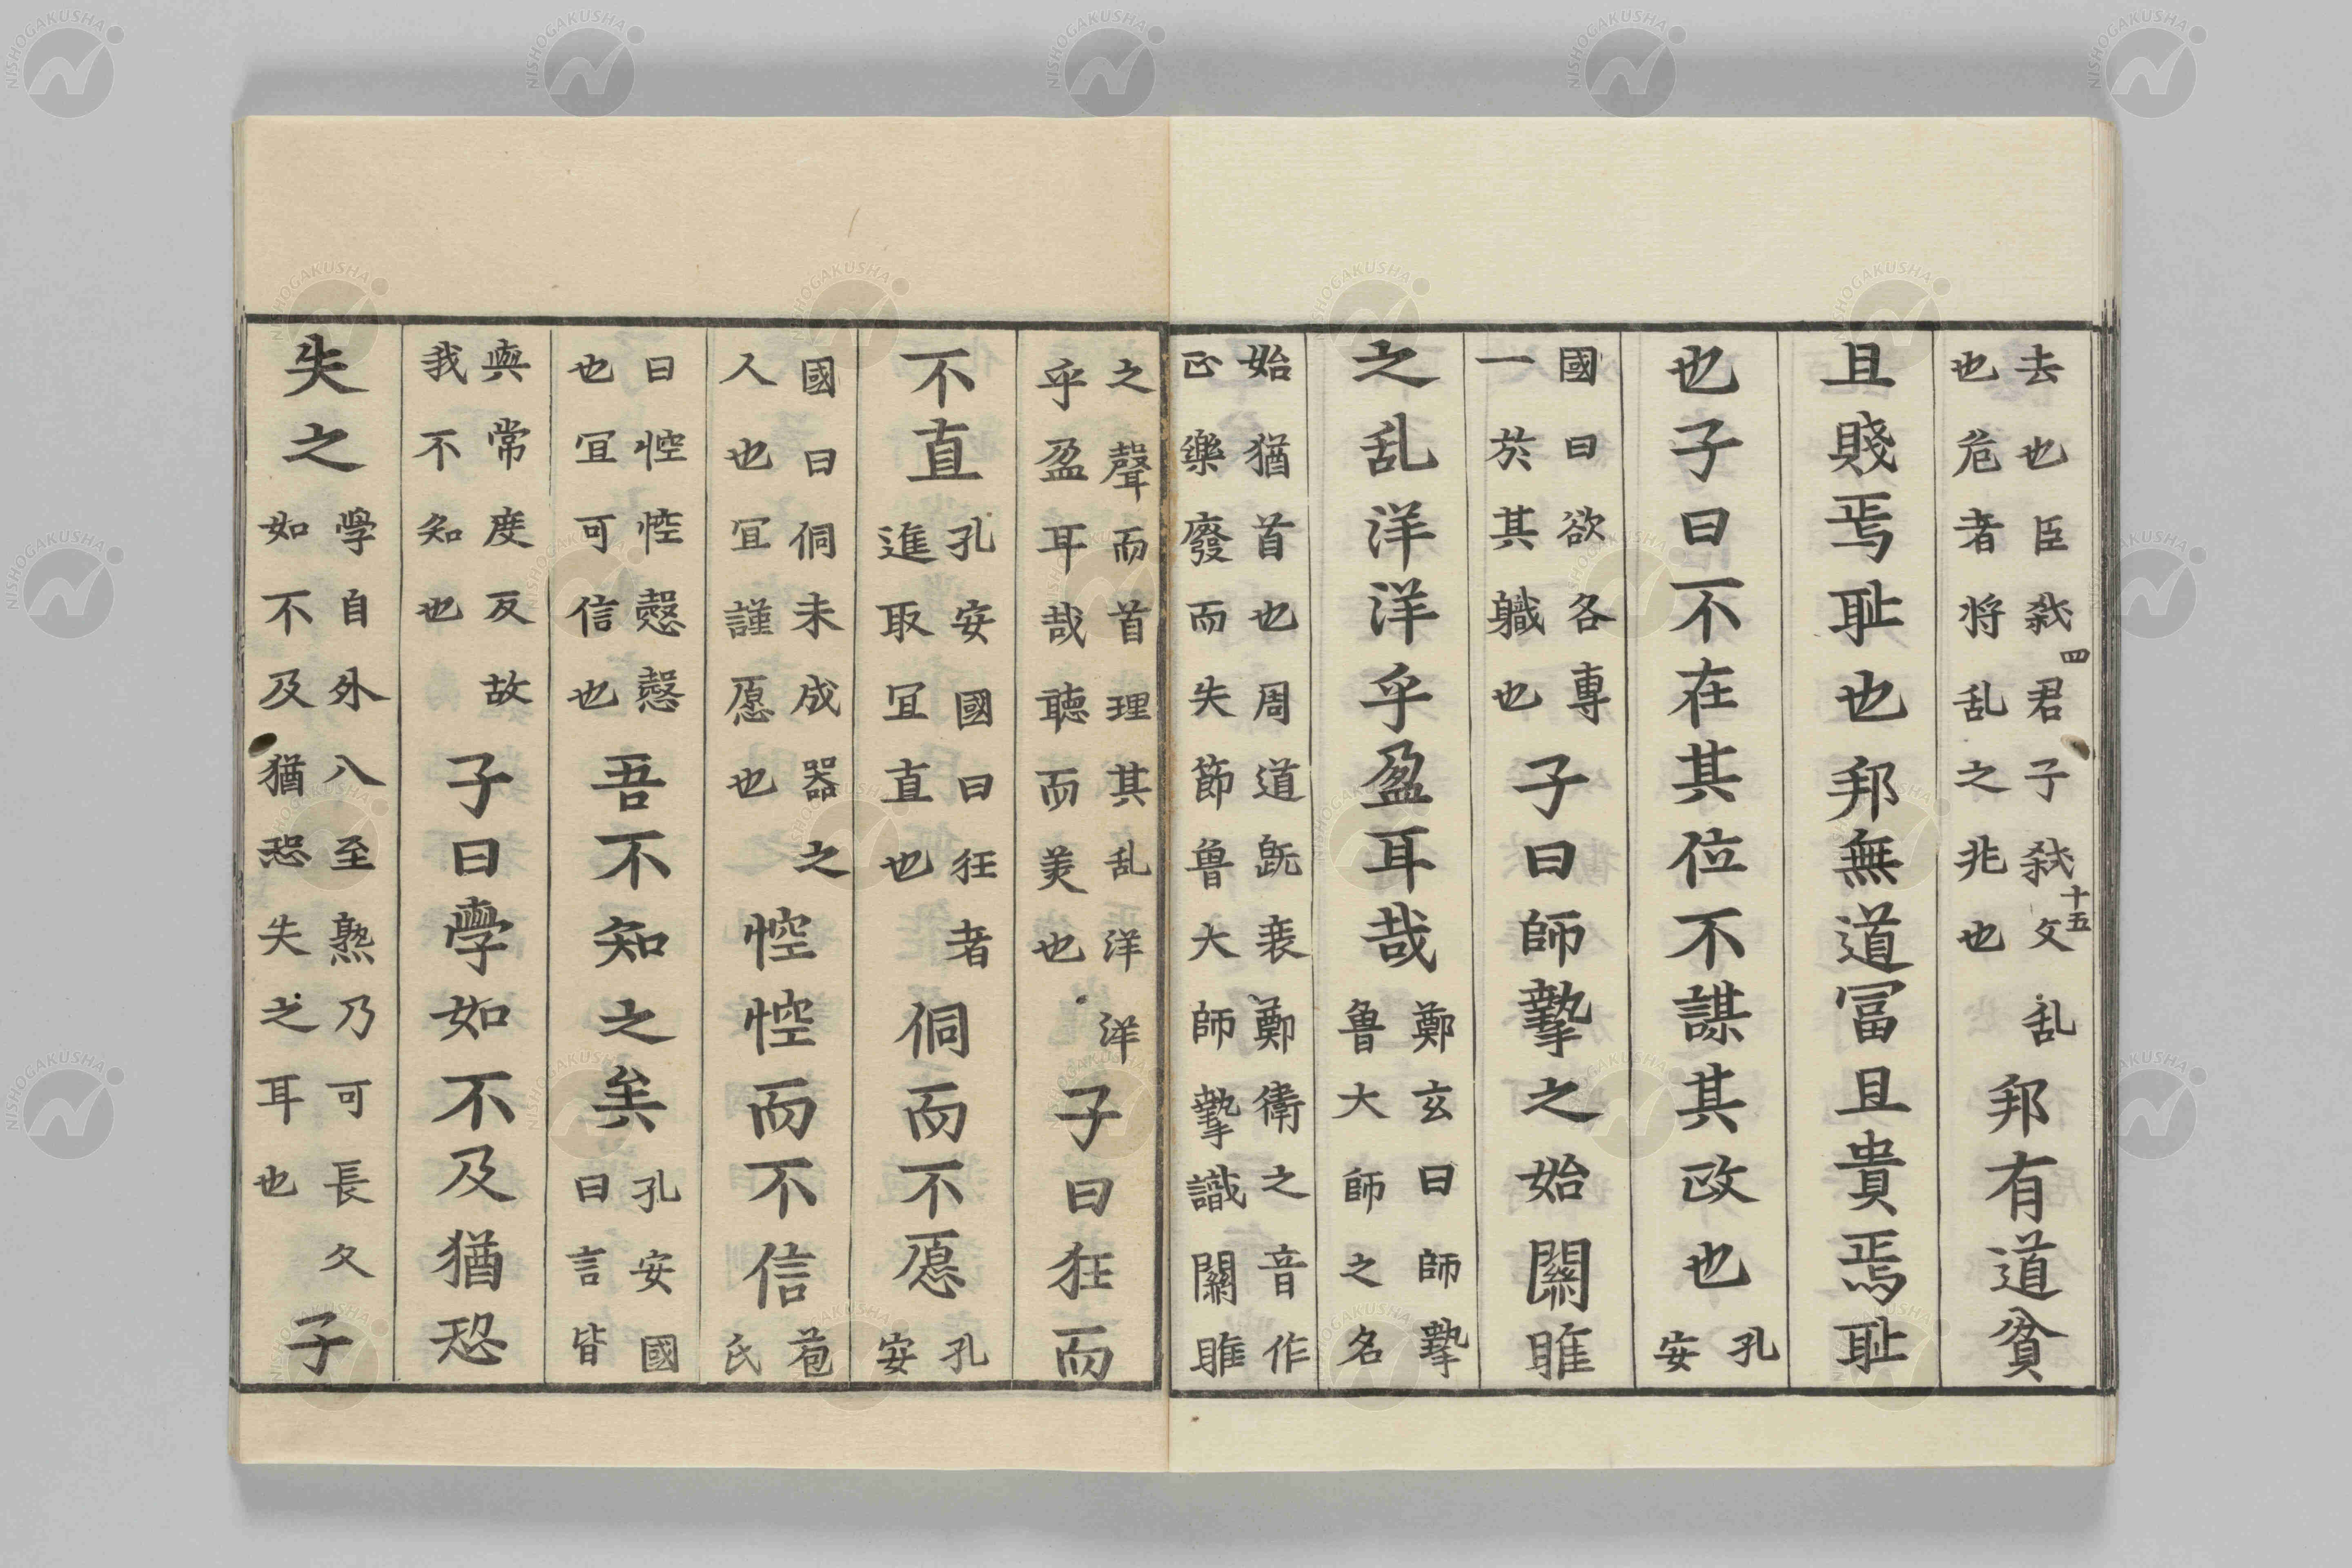 去也臣弑君子弑父乱
四
十五
也危者将乱之兆也
邦有道貧
且賤焉耻也邦無道冨且貴焉耻
也子曰不在其位不謀其政也
孔
安
國曰欲各専
一於其軄也
子曰師摯之始關雎
之乱洋洋乎盈耳哉
鄭玄曰師摯
魯大師之名
始猶首也周道既衰鄭衛之音作
正樂廢而失節魯大師摯識關雎
之聲而首理其乱洋洋
乎盈耳哉聴而美也
子曰狂而
不直
孔安國曰狂者
進取冝直也
侗而不愿
孔
安
國曰侗未成器之
人也冝謹愿也
悾悾而不信
苞
氏
曰悾悾愨愨
也冝可信也
吾不知之矣
孔安國
曰言皆
與常度反故
我不知也
子曰學如不及猶恐
失之
學自外入至熟乃可長久
如不及猶恐失之耳也
子
NISHOGAKUSHA